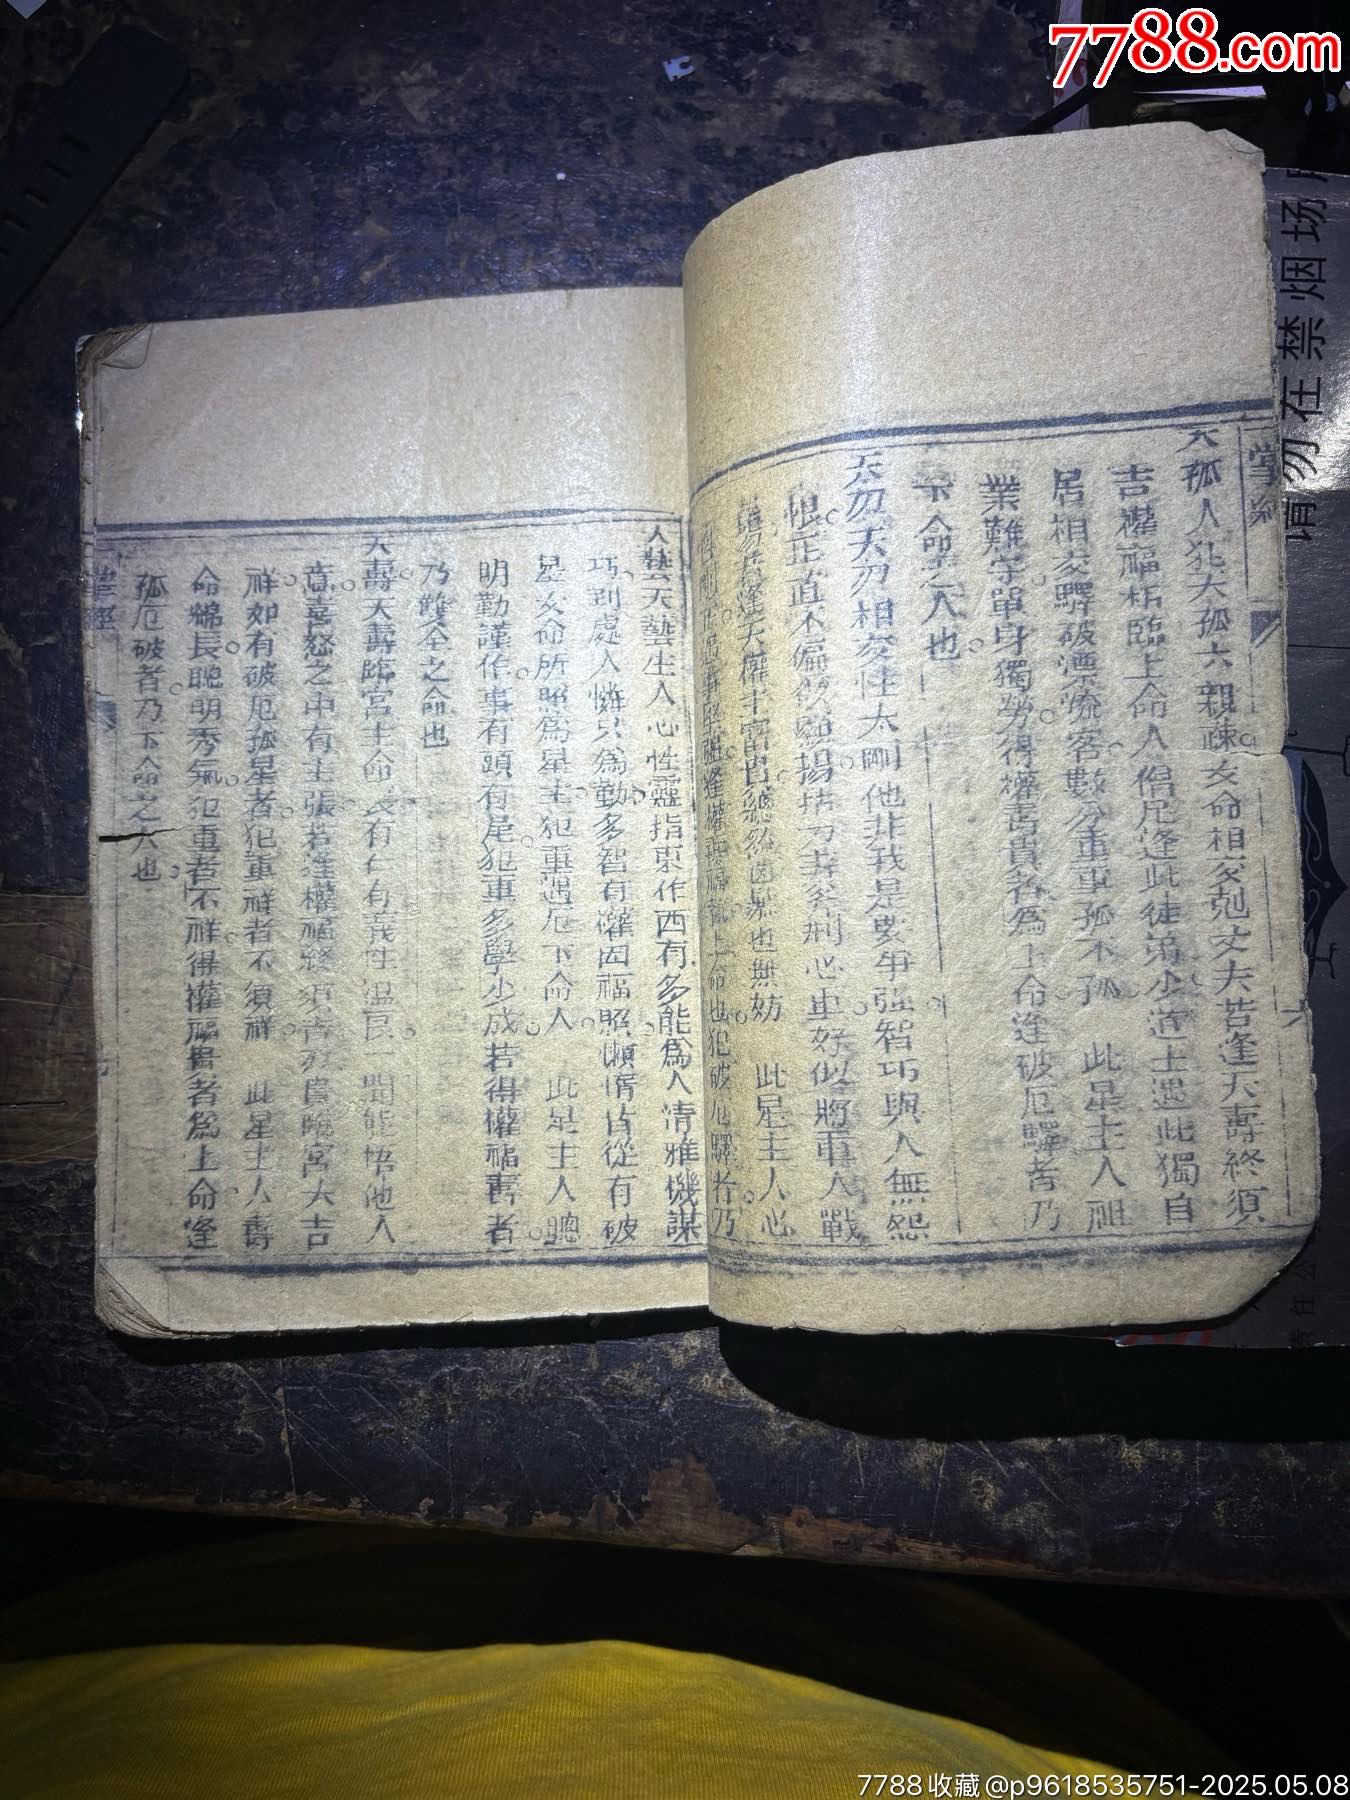 7788.com
请勿在禁烟场
掌經
天孤人犯天孤六親疎女命相交尅丈夫若逢天壽終須
吉權福相臨上命人倡尼逢此徒弟少道士遇此獨自
居相交驛破漂流客數分重重孤不孤 此星主人祖
業難守單身獨勞得權貴貴者為上命逢破厄驛者乃
下命之人也
天刃天刃相交性太剛他非我是要爭強智巧與人無怨
恨正直不偏
主人心
命也犯破厄驛者乃
天藝天藝生人心性靈指東作西有多能為人清雅機謀
巧到處人憐只為勤多智有權因福照懶惰皆從有破
星女命所照為星主犯重遇厄下命人 此星主人聰
明勤謹作事有頭有尾犯重多學少成若得權福壽者
乃雙全之命也
天壽天壽臨宮主命長有仁有義性溫良一聞能悟他人
意喜怒之中有主張若逢權福終須吉 臨宮大吉
祥如有破厄孤星者犯重祥者不須祥 此星主人壽
命綿長聰明秀氣犯重者不祥得權福貴者為上命逢
孤厄破者乃下命之人也
掌經
7788收藏@p9618535751-2025.05.08